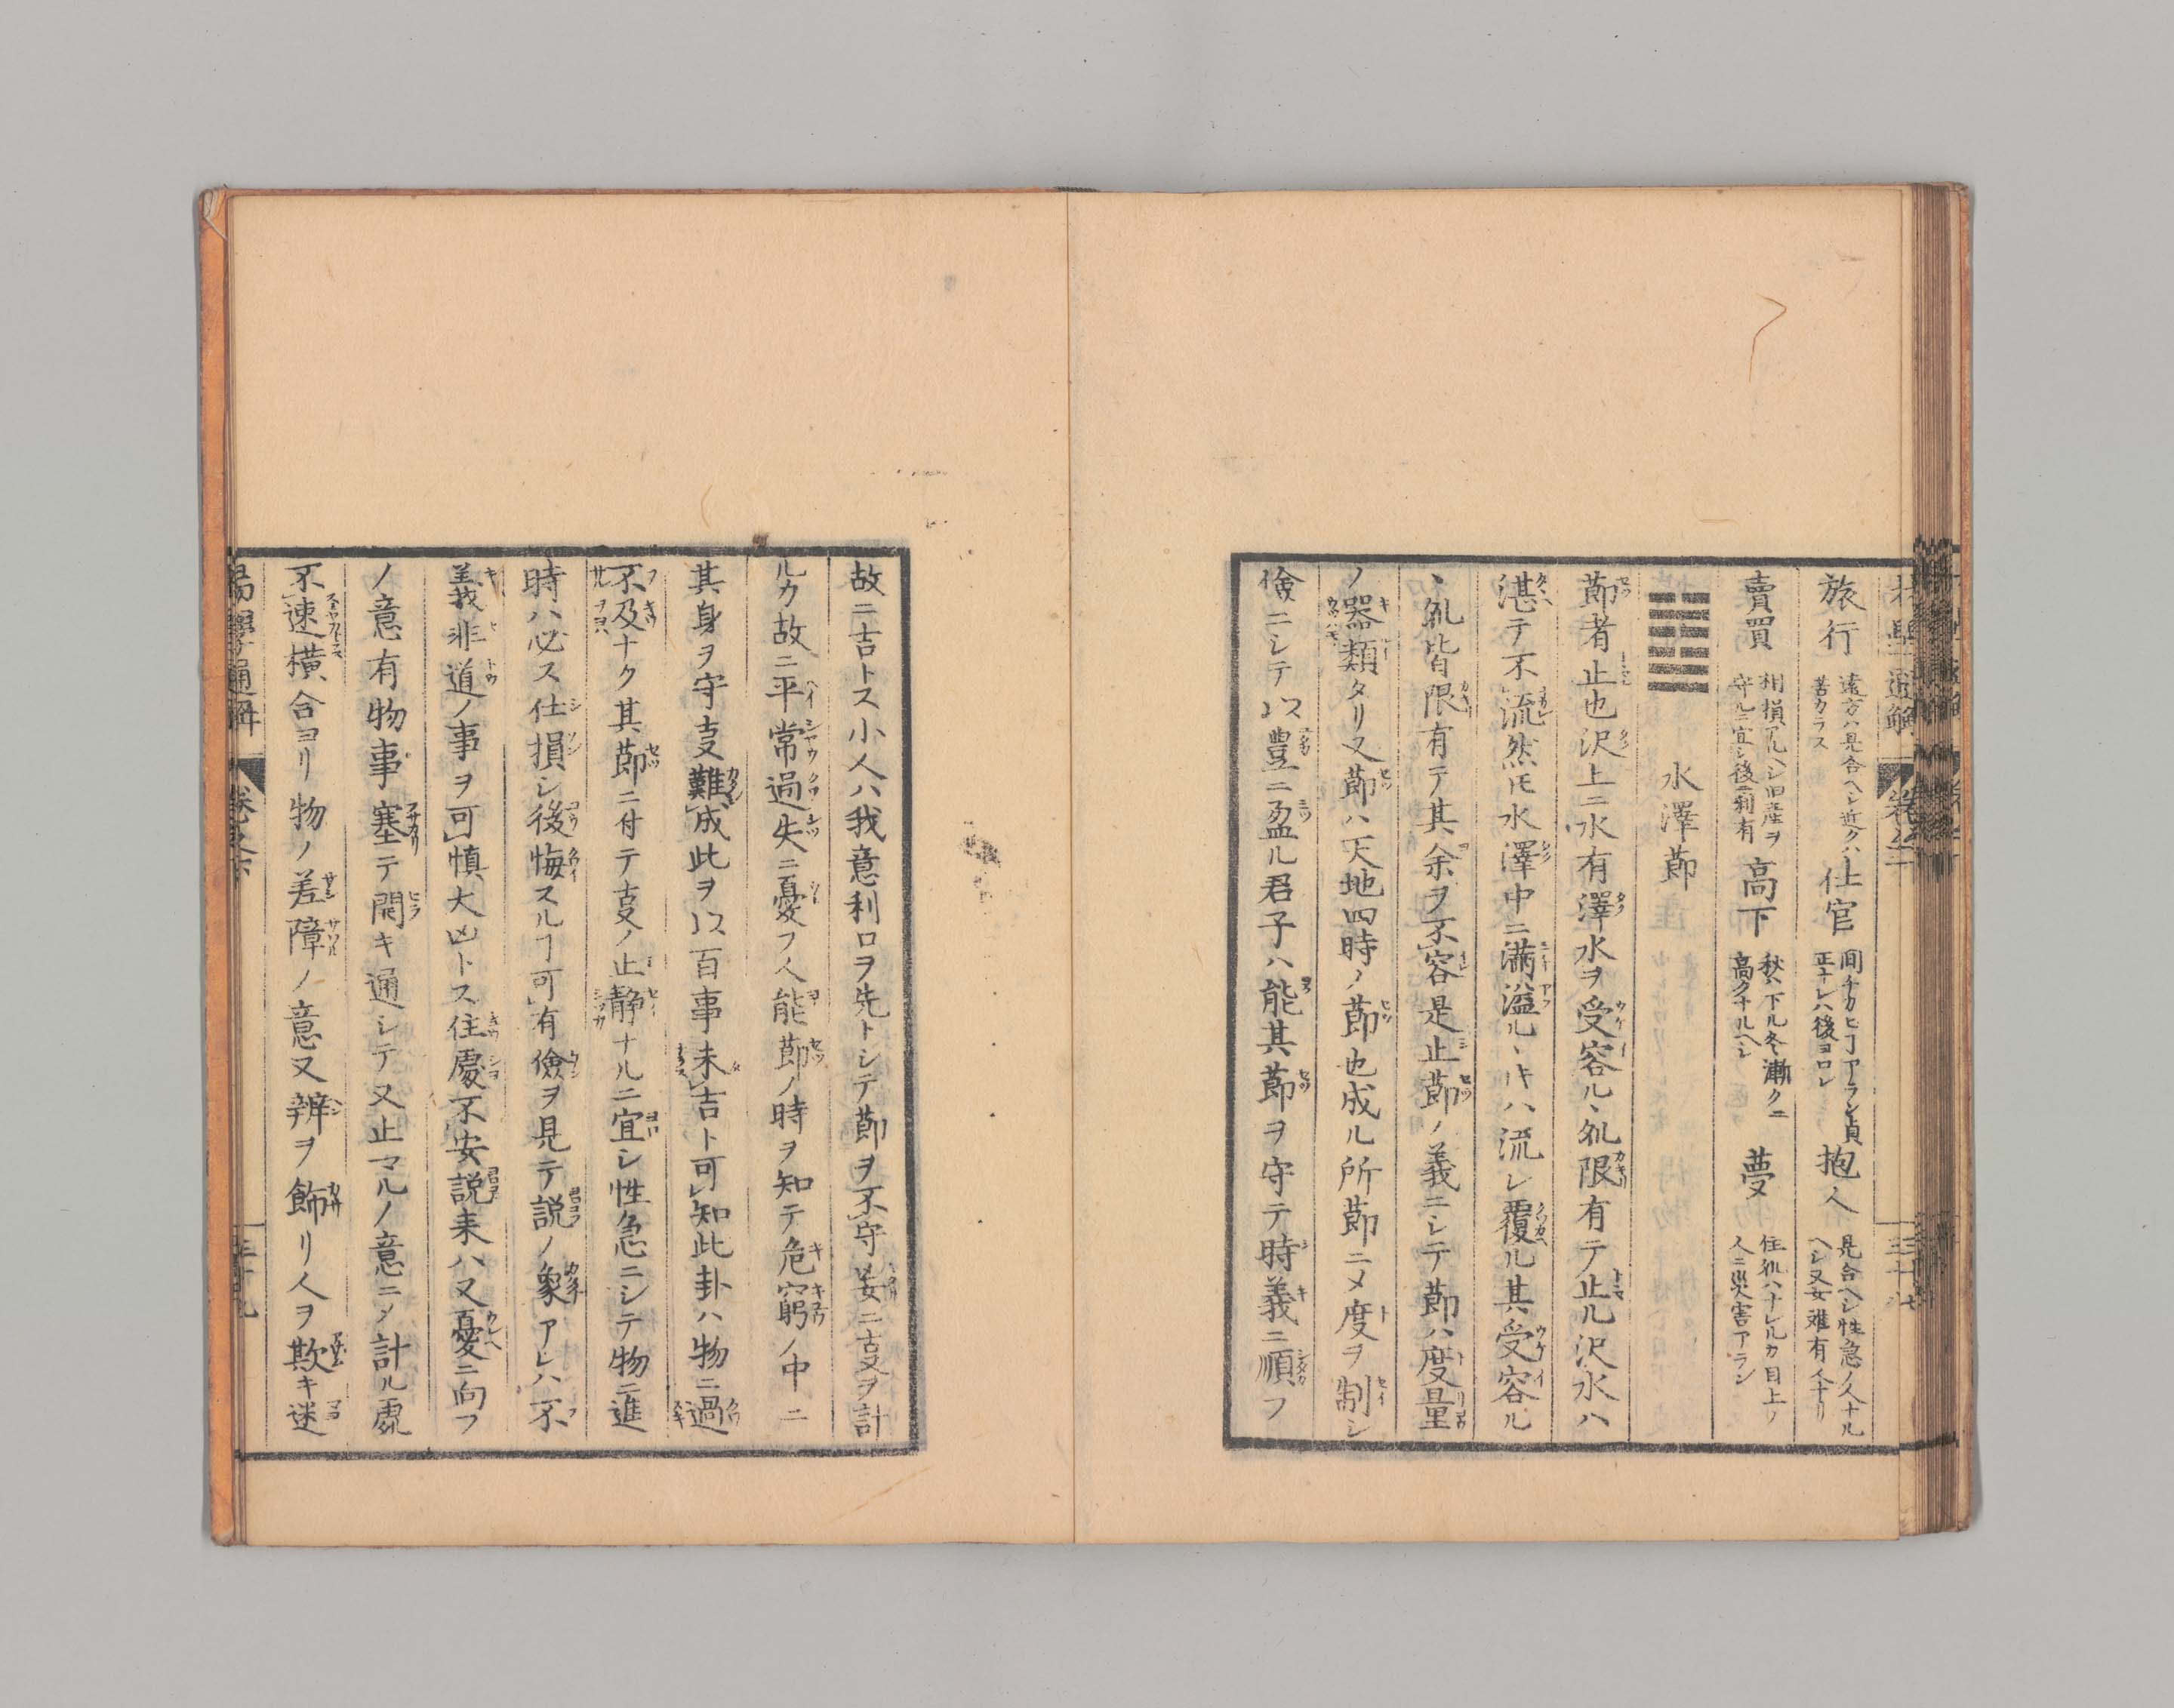 旅行 遠方ハ見合ヘシ近クハ苦カラス 仕官 間チカヒヿアラン貞正ナレハ後ヨロシ 抱人 見合ヘシ性急ノ人ナルヘシ又女难有人ナリ
賣買 相損アルヘシ旧産ヲ守ルニ宜シ後ニ利有 高下 秋ハ下ル冬漸クニ高クナルヘシ 夢 住処ハナレルカ目上ノ人ニ災害アラン
水澤節
節者止也沢上ニ水有澤水ヲ受容ルヽ処限有テ止ル沢水ハ
湛テ不流然𪜈水澤中ニ満溢ルヽキハ流レ覆ル其受容ル
ヽ処皆限有テ其余ヲ不容是止節ノ義ニシテ節ハ度量
ノ器類タリ又節ハ天地四時ノ節也成ル所節ニメ度ヲ制シ
儉ニシテ以豊ニ盈ル君子ハ能其節ヲ守テ時義ニ順フ
故ニ吉トス小人ハ我意利口ヲ先トシテ節ヲ不守妄ニ叓ヲ計
ルカ故ニ平常過失ニ憂フ人能節ノ時ヲ知テ危窮ノ中ニ
其身ヲ守叓難成此ヲ以百事未吉ト可知此卦ハ物ニ過
不及ナク其節ニ付テ叓ノ止静ナルニ宜シ性急ニシテ物ニ進
時ハ必ス仕損シ後悔スルヿ可有儉ヲ見テ説ノ象アレハ不
義非道ノ事ヲ可慎大凶トス住處不安説来ハ又憂ニ向フ
ノ意有物事塞テ開キ通シテ又止マルノ意ニメ計ル處
不速横合ヨリ物ノ差障ノ意又辨ヲ飾リ人ヲ欺キ迷
易學通解 卷之六 三十九